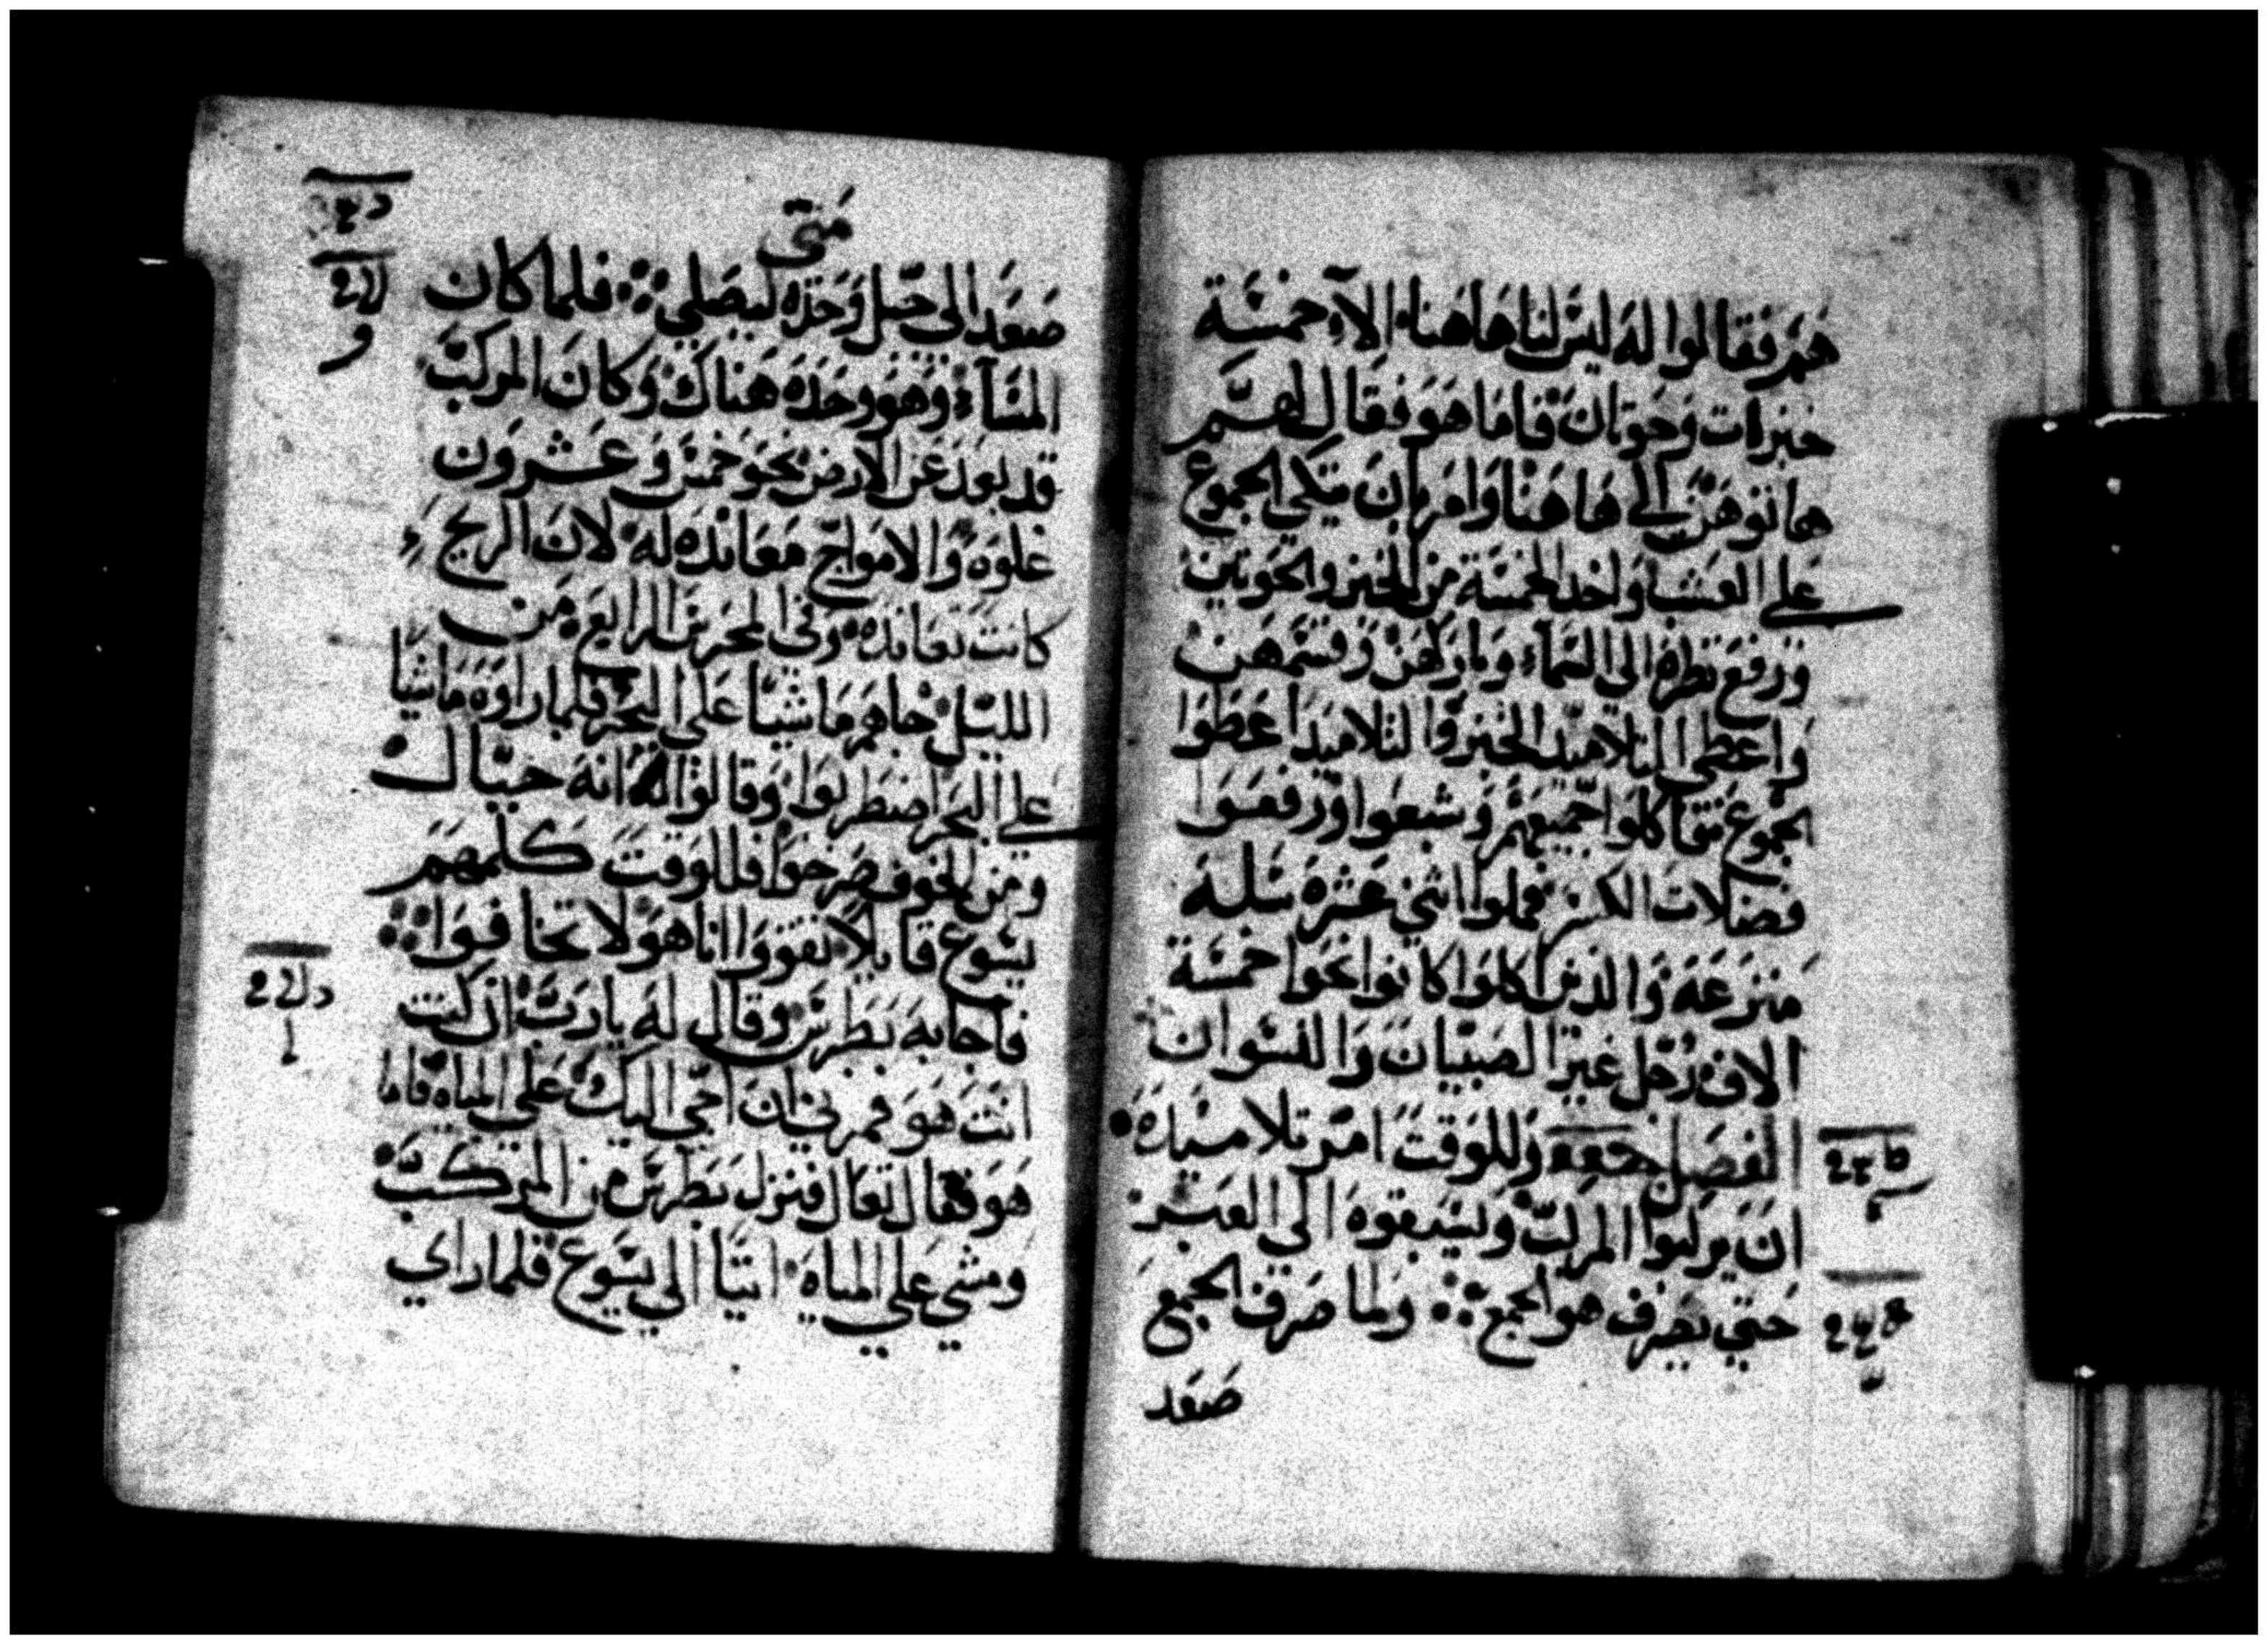 هم فقالوا له ليس لنا هاهنا الا خمسة
خبزات وحوتان فاما هو فقال لهم
هاتوهن الي هاهنا وامر بان يتكي الجموع
علي العشب واخد الخمسة من الخبز والحوتين
ورفع نظره الي السماء وباركهن وقسمهن
واعطي التلاميد الخبز والتلاميد اعطوا
الجموع فاكلوا جميعهم وشبعوا ورفعوا
فضلات الكسر فملوا اثني عشره سله
منزعه والدين اكلوا كانوا نحوا خمسة
الاف رجل غير الصبيان والنسوان
الفصل وللوقت امر تلاميده
ان يركبوا المركب ويسبقوه الي العبر
حتي يصرف هو الجمع ولما صرف الجمع
صعد
متى
صعد الى جبل وحده ليصلي فلما كان
المساء وهو وحده هناك وكان المركب
قد بعد عن الارض نحو خمس وعشرون
غلوه والامواج معانده له لان الريح
كانت تعانده وفي المحرس الرابع من
الليل جاهم ماشيا علي البحر فلما راوه ماشيا
علي البحر اضطربوا وقالوا انه خيال
ومن الخوف صرخوا فللوقت كلمهم
يسوع قايلا تقووا انا هو لا تخافوا
فاجابه بطرس وقال له يارب ان كنت
انت هو فمرني ان اجي اليك علي المياه فاما
هو فقال تعال فنزل بطرس من المركب
ومشي علي المياه اتيا الي يسوع فلما راي